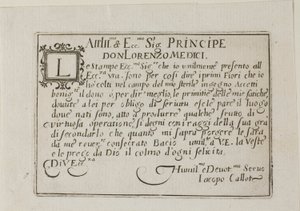 All Ill.mo & Ecc.mo Sig.r PRINCIPE
DON LORENZO MEDICI.
L
e Stampe Ecc.mo Sig.re che io umilmente presento all
Ecc.za Vra. sono per così dire i primi Fiori che io
ho colti nel campo del mio sterile ingegno Accetti
benig.te il dono o per dir meglio, le primitie delle mie fatiche
douute a lei per obligo di seruitu e se le pare il luogo
doue nati sono, atto a produrre qualche frutto di
virtuosa operatione si degni con i raggi della sua gra
di secondarlo che quanto mi saprà porgere le sarà
da me reuer.te consecrato Bacio umil.te a V.E. la Veste
e le prego da Dio il colmo d'ogni felicità.
Di V. Ecc.za
Humil.mo e Deuot.mo Seruo
Iacopo Callot.